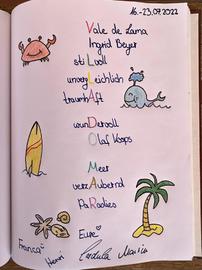 16.-23.07.2022
Vale de Lama
Ingrid Beyer
stiLvoll
unvergLeichlich
traumhAft
wunDervoll
Olaf Koops
Meer
verzAubernd
PaRadies
Eure
Franca
Henri
Cordula Maria